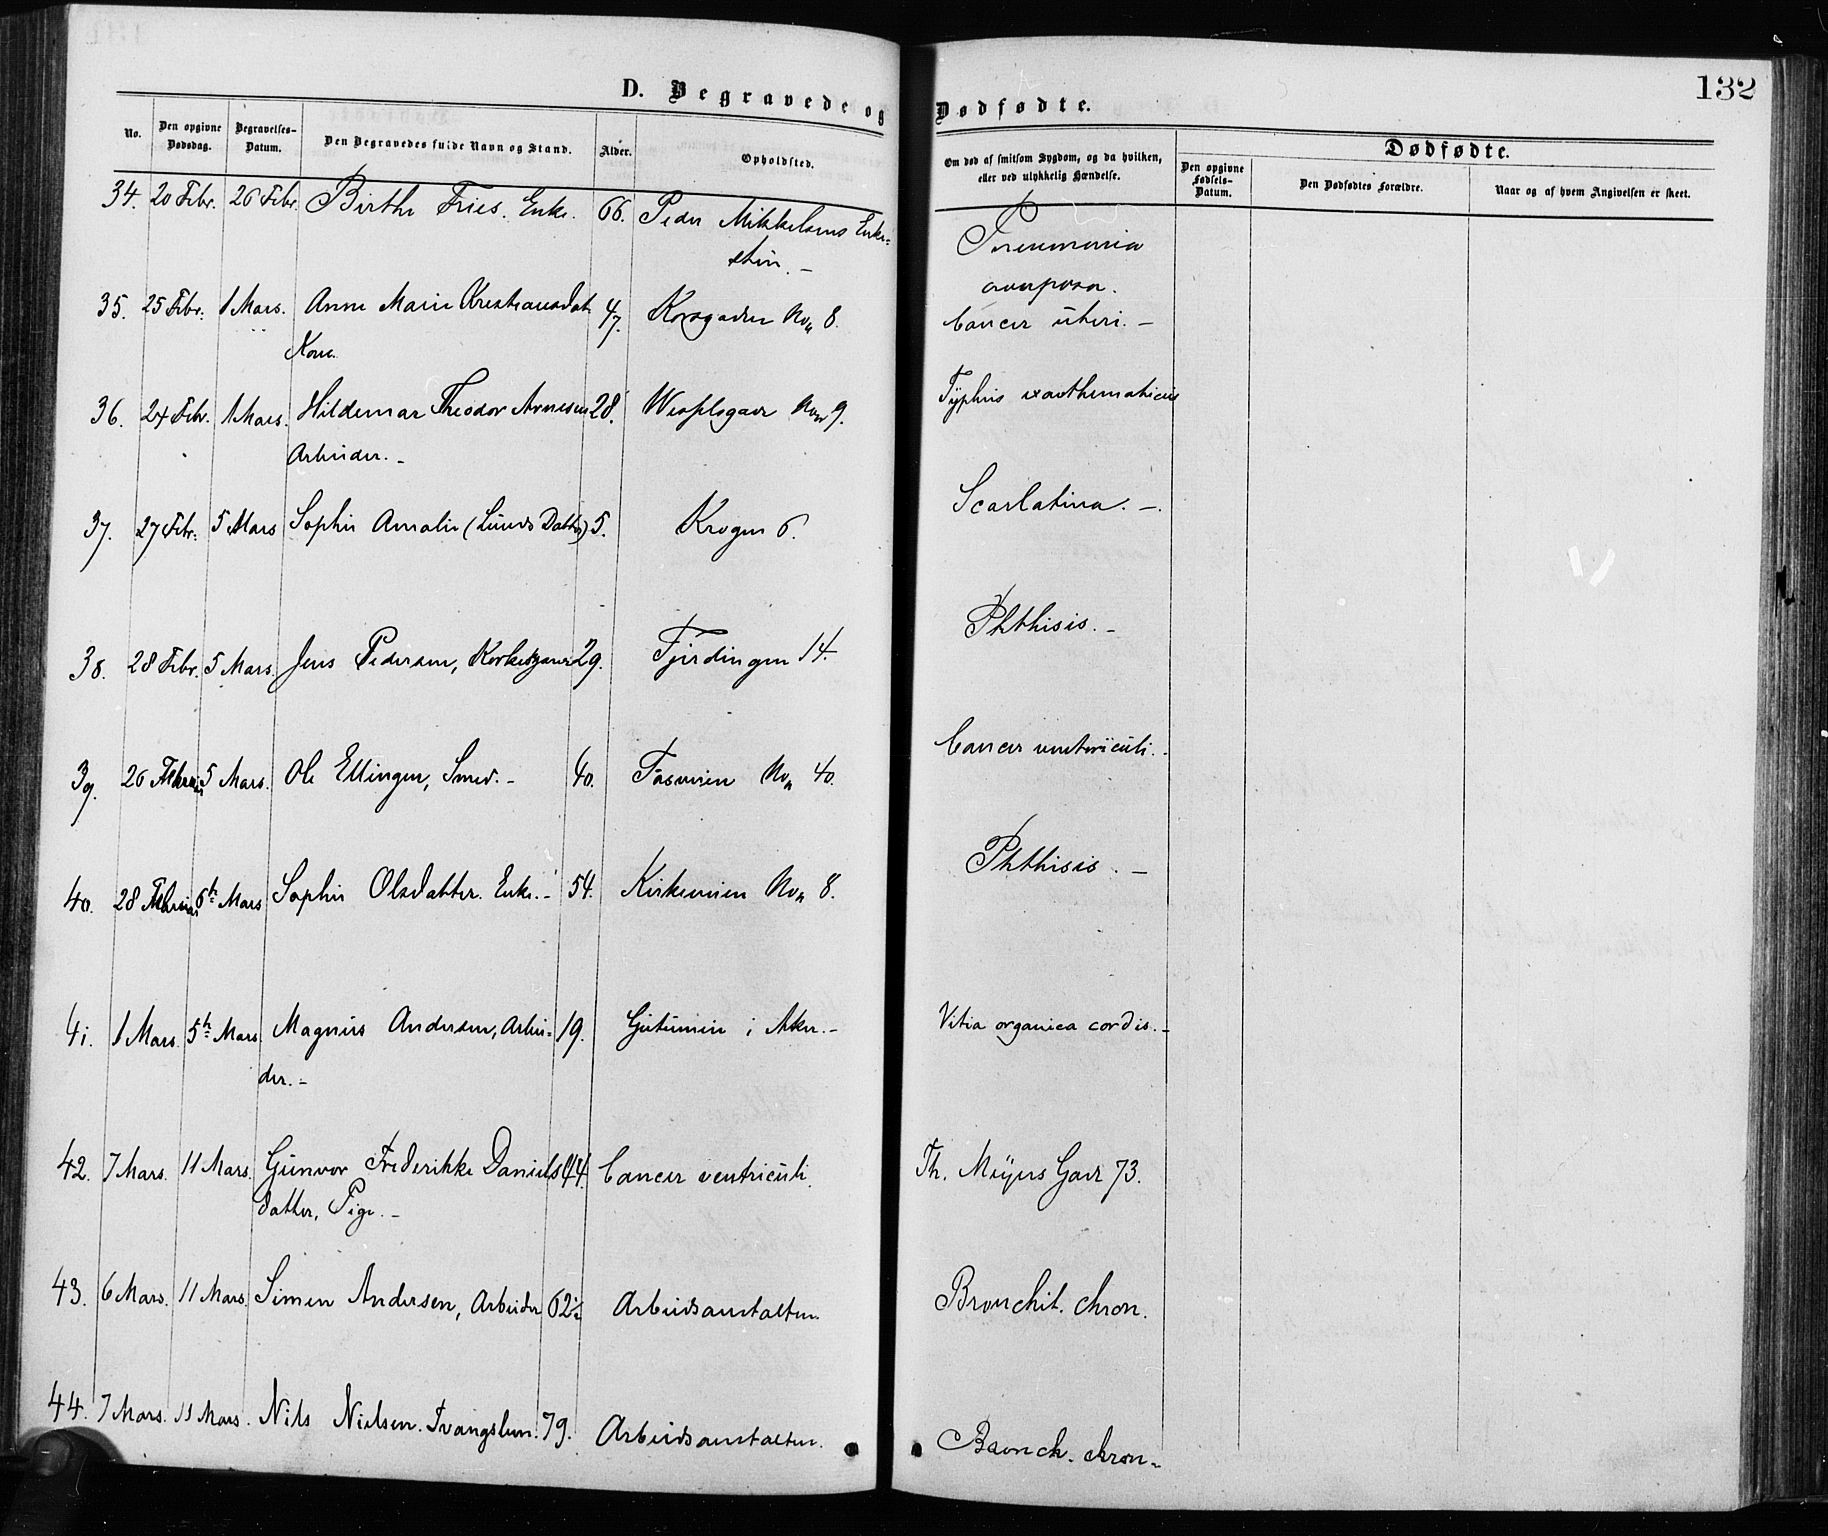 132
D. Begravede og Dødfødte.
No. Den opgivne Dødsdag. Begravelses-Datum. Den Begravedes fulde Navn og Stand. Alder. Opholdsted. Om død af smitsom Sygdom, og da hvilken, eller ved ulykkelig Hændelse. Dødfødte.
Den opgivne Fødsels-Datum. Den Dødfødtes Forældre. Naar og af hvem Angivelsen er skeet.
34. 20 Febr. 26 Febr. Birthe Fries. Enke. 66. Peder Mikkelsens Enke= Pneumonia
stin. –
35. 25 Febr: 1 Mars. Anne Marie Kristiansdat 47. Korsgaden No 8. Cancer uteri. –
Kone.
36. 24 Febr. 1 Mars. Hildemar Theodor Arnesen 28. No 9. Typhus exanthematicus
Arbeider. –
37. 27 Febr: 5 Mars Sophie Amalie (Lunds Datter) 5. Krogen 6. Scarlatina. –.
38. 28 Febr. 5 Mars. Jens Pedersen, 29. Fjerdingen 14. Phthisis. –
39. 26 Februar 5 Mars. Ole Ellingsen, Smed. – 40. No 40. Cancer ventriculi. –
40. 28 Februar 6te Mars Sophie Olsdatter. Enke. – 54. Kirkeveien No 8. Phthisis. –
41. 1 Mars. 5te Mars. Magnus Andersen, Arbei= 19. i Aker. – Vitia organica cordis. –
der. –
42. 7 Mars. 11 Mars. Gunvor Frederikke Daniels 44. Cancer ventriculi. Th. Meyers Gard 73.
datter, Pige. –
43. 6 Mars. 11 Mars. Simen Andersen, Arbeider 62½ Arbeidsanstalten. Bronchit. chron.
44. 7 Mars. 11 Mars. Nils Nielsen. Tvangslem. 79. Arbeidsanstalten. Bronch. chron. –